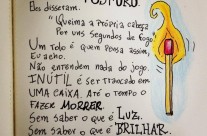 Eles disseram:
"Queima a própria cabeça
Por uns segundos de fogo
Um tolo é quem pensa assim,
Eu acho.
Não entendem nada do jogo.
INÚTIL é ser trancado em
UMA CAIXA. Até o tempo o
FAZER MORRER.
Sem saber o que é LUZ.
Sem saber o que é BRILHAR.